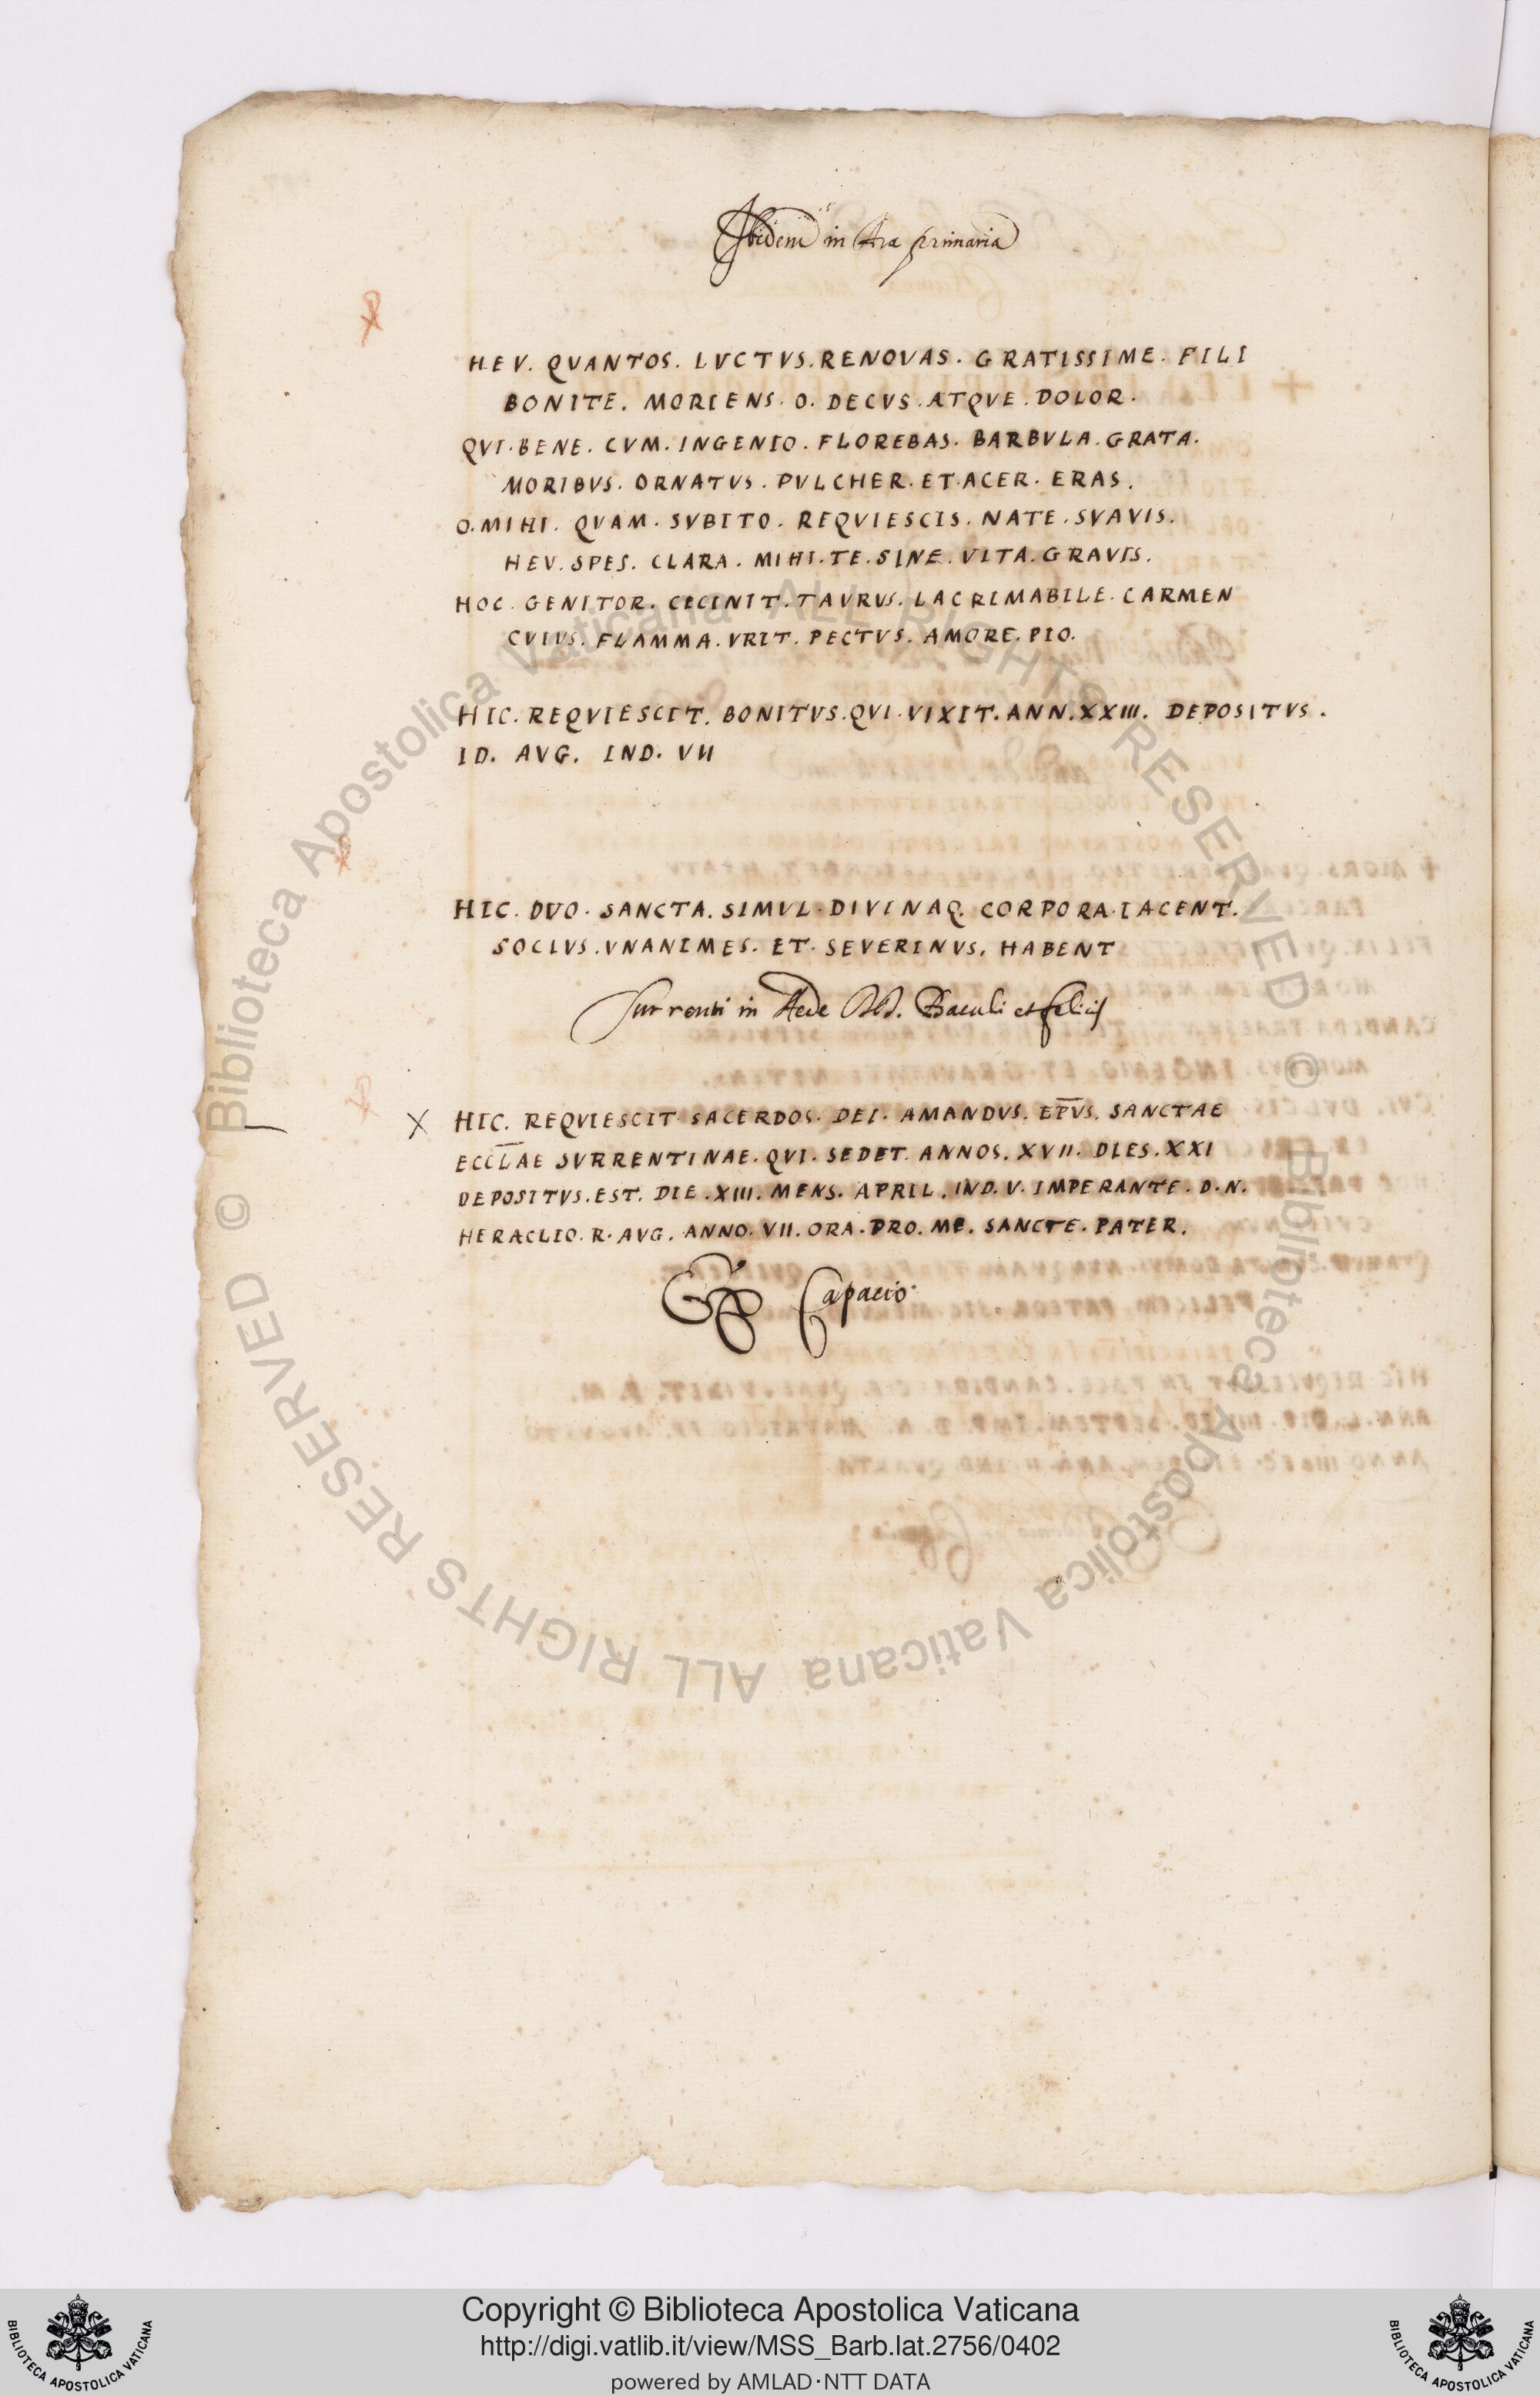 Ibidem in Ara primaria
HEV. QVANTOS. LVCTVS. RENOVAS. GRATISSIME. FILI
BONITE. MORIENS. O. DECVS. ATQVE. DOLOR.
QVI. BENE. CVM. INGENIO. FLOREBAS. BARBVLA. GRATA.
MORIBVS. ORNATVS. PVLCHER. ET. ACER. ERAS.
O. MIHI. QVAM. SVBITO. REQVIESCIS. NATE. SVAVIS.
HEV. SPES. CLARA. MIHI. TE. SINE. VITA. GRAVIS.
HOC. GENITOR. CECINIT. TAVRVS. LACRIMABILE. CARMEN
CVIVS. FLAMMA. VRIT. PECTVS. AMORE. PIO.
HIC. REQVIESCIT. BONITVS. QVI. VIXIT. ANN. XXIII. DEPOSITVS.
ID. AVG. IND. VII
HIC. DVO. SANCTA. SIMVL. DIVINAQ. CORPORA. IACENT.
SOCIVS. VNANIMES. ET. SEVERINVS. HABENT
Surrenti in Aede DD. Baculi et felicis
X HIC. REQVIESCIT SACERDOS. DEI. AMANDVS. EP̅V̅S. SANCTAE
ECC̅L̅AE SVRRENTINAE. QVI. SEDET. ANNOS. XVII. DIES. XXI
DEPOSITVS. EST. DIE. XIII. MENS. APRIL. IND. V. IMPERANTE. D. N.
HERACLIO. R. AVG. ANNO. VII. ORA. PRO. ME. SANCTE. PATER.
Capacio
© Biblioteca Apostolica Vaticana ALL RIGHTS RESERVED © Biblioteca Apostolica Vaticana ALL RIGHTS RESERVED
Copyright © Biblioteca Apostolica Vaticana
http://digi.vatlib.it/view/MSS_Barb.lat.2756/0402
powered by AMLAD·NTT DATA
BIBLIOTECA APOSTOLICA VATICANA
BIBLIOTECA APOSTOLICA VATICANA